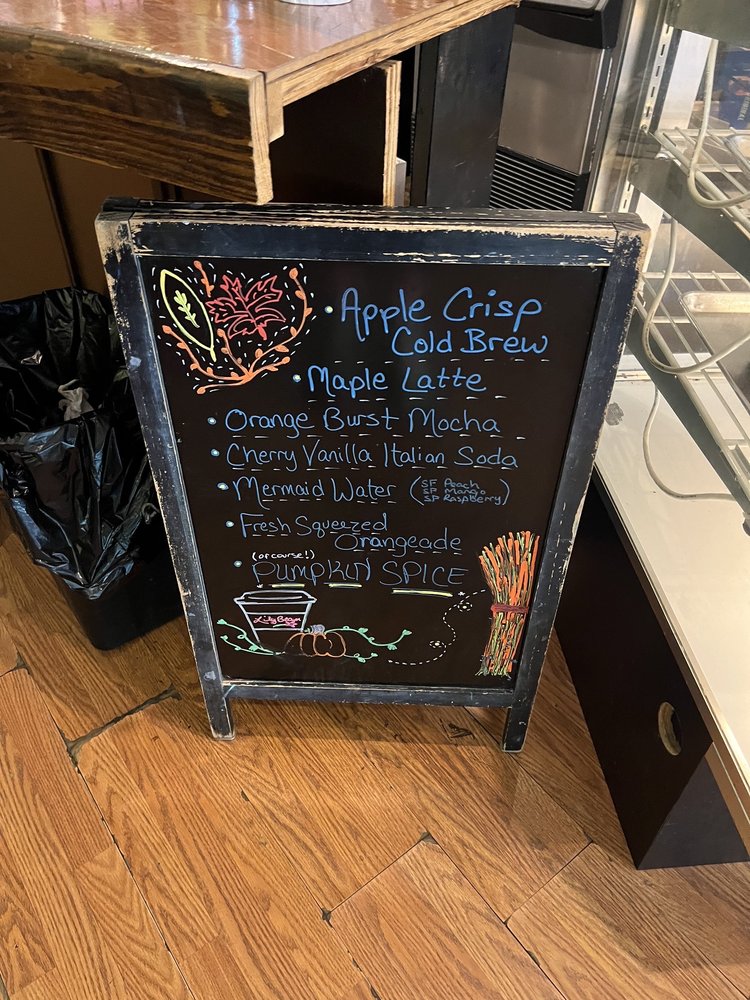 • Apple Crisp
Cold Brew
• Maple Latte
• Orange Burst Mocha
• Cherry Vanilla Italian Soda
• Mermaid Water (SF Peach
SP Mango
SP Raspberry)
• Fresh Squeezed
Orangeade
(of course!)
• PUMPKIN SPICE
Lily Bean